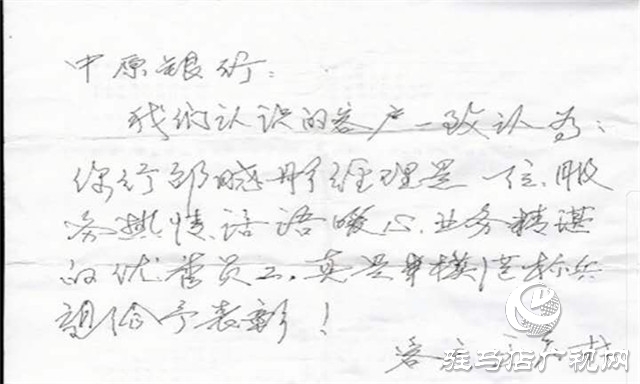 中原银行:
我们认识的客户一致认为:
你行邵晓彤经理是一位服
务热情、话语暖心、业务精湛
的优秀员工,真是劳模范标兵
望给予表彰!
客户
驻马店广视网